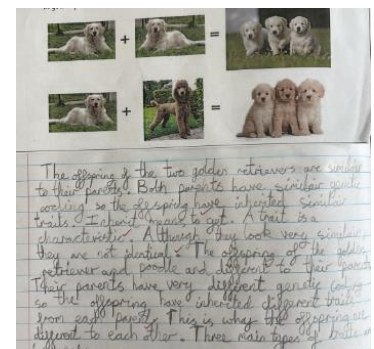 + =
+ =
The offspring of the two golden retrievers are similar
to their parents. Both parents have similar genetic
coding so the offspring have inherited similar
traits. Inherit means to get. A trait is a
characteristic. Although they look very similar
they are not identical. The offspring of the golden
retriever and poodle and different to their parents
Their parents have very different genetic coding
so the offspring have inherited different traits
from each parent. This is why the offspring are
different to each other. Three main types of traits